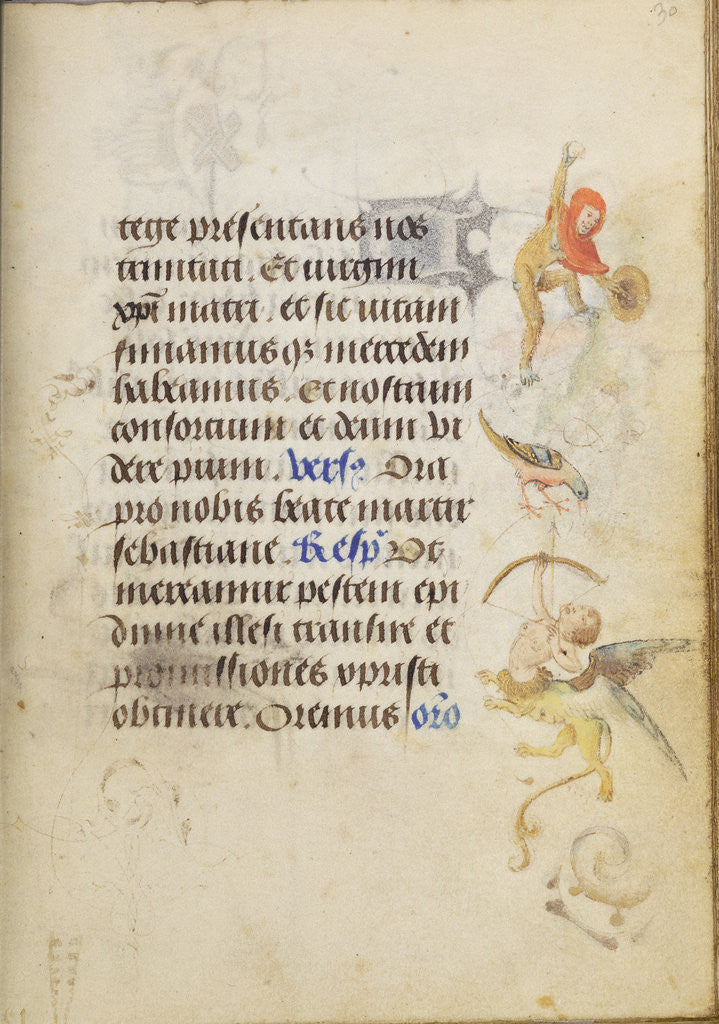 30
tege presentans nos
trinitati. Et uirgini
xpi matri. et sic uitam
finiamus qz mercedem
habeamus. Et nostrum
consorcium et deum vi
dere pium. vers9 Ora
pro nobis beate martir
sebastiane. Resp Ut
mereamur pestem epi
dimie illesi transire et
promissiones xpristi
obtinere. Oremus oro